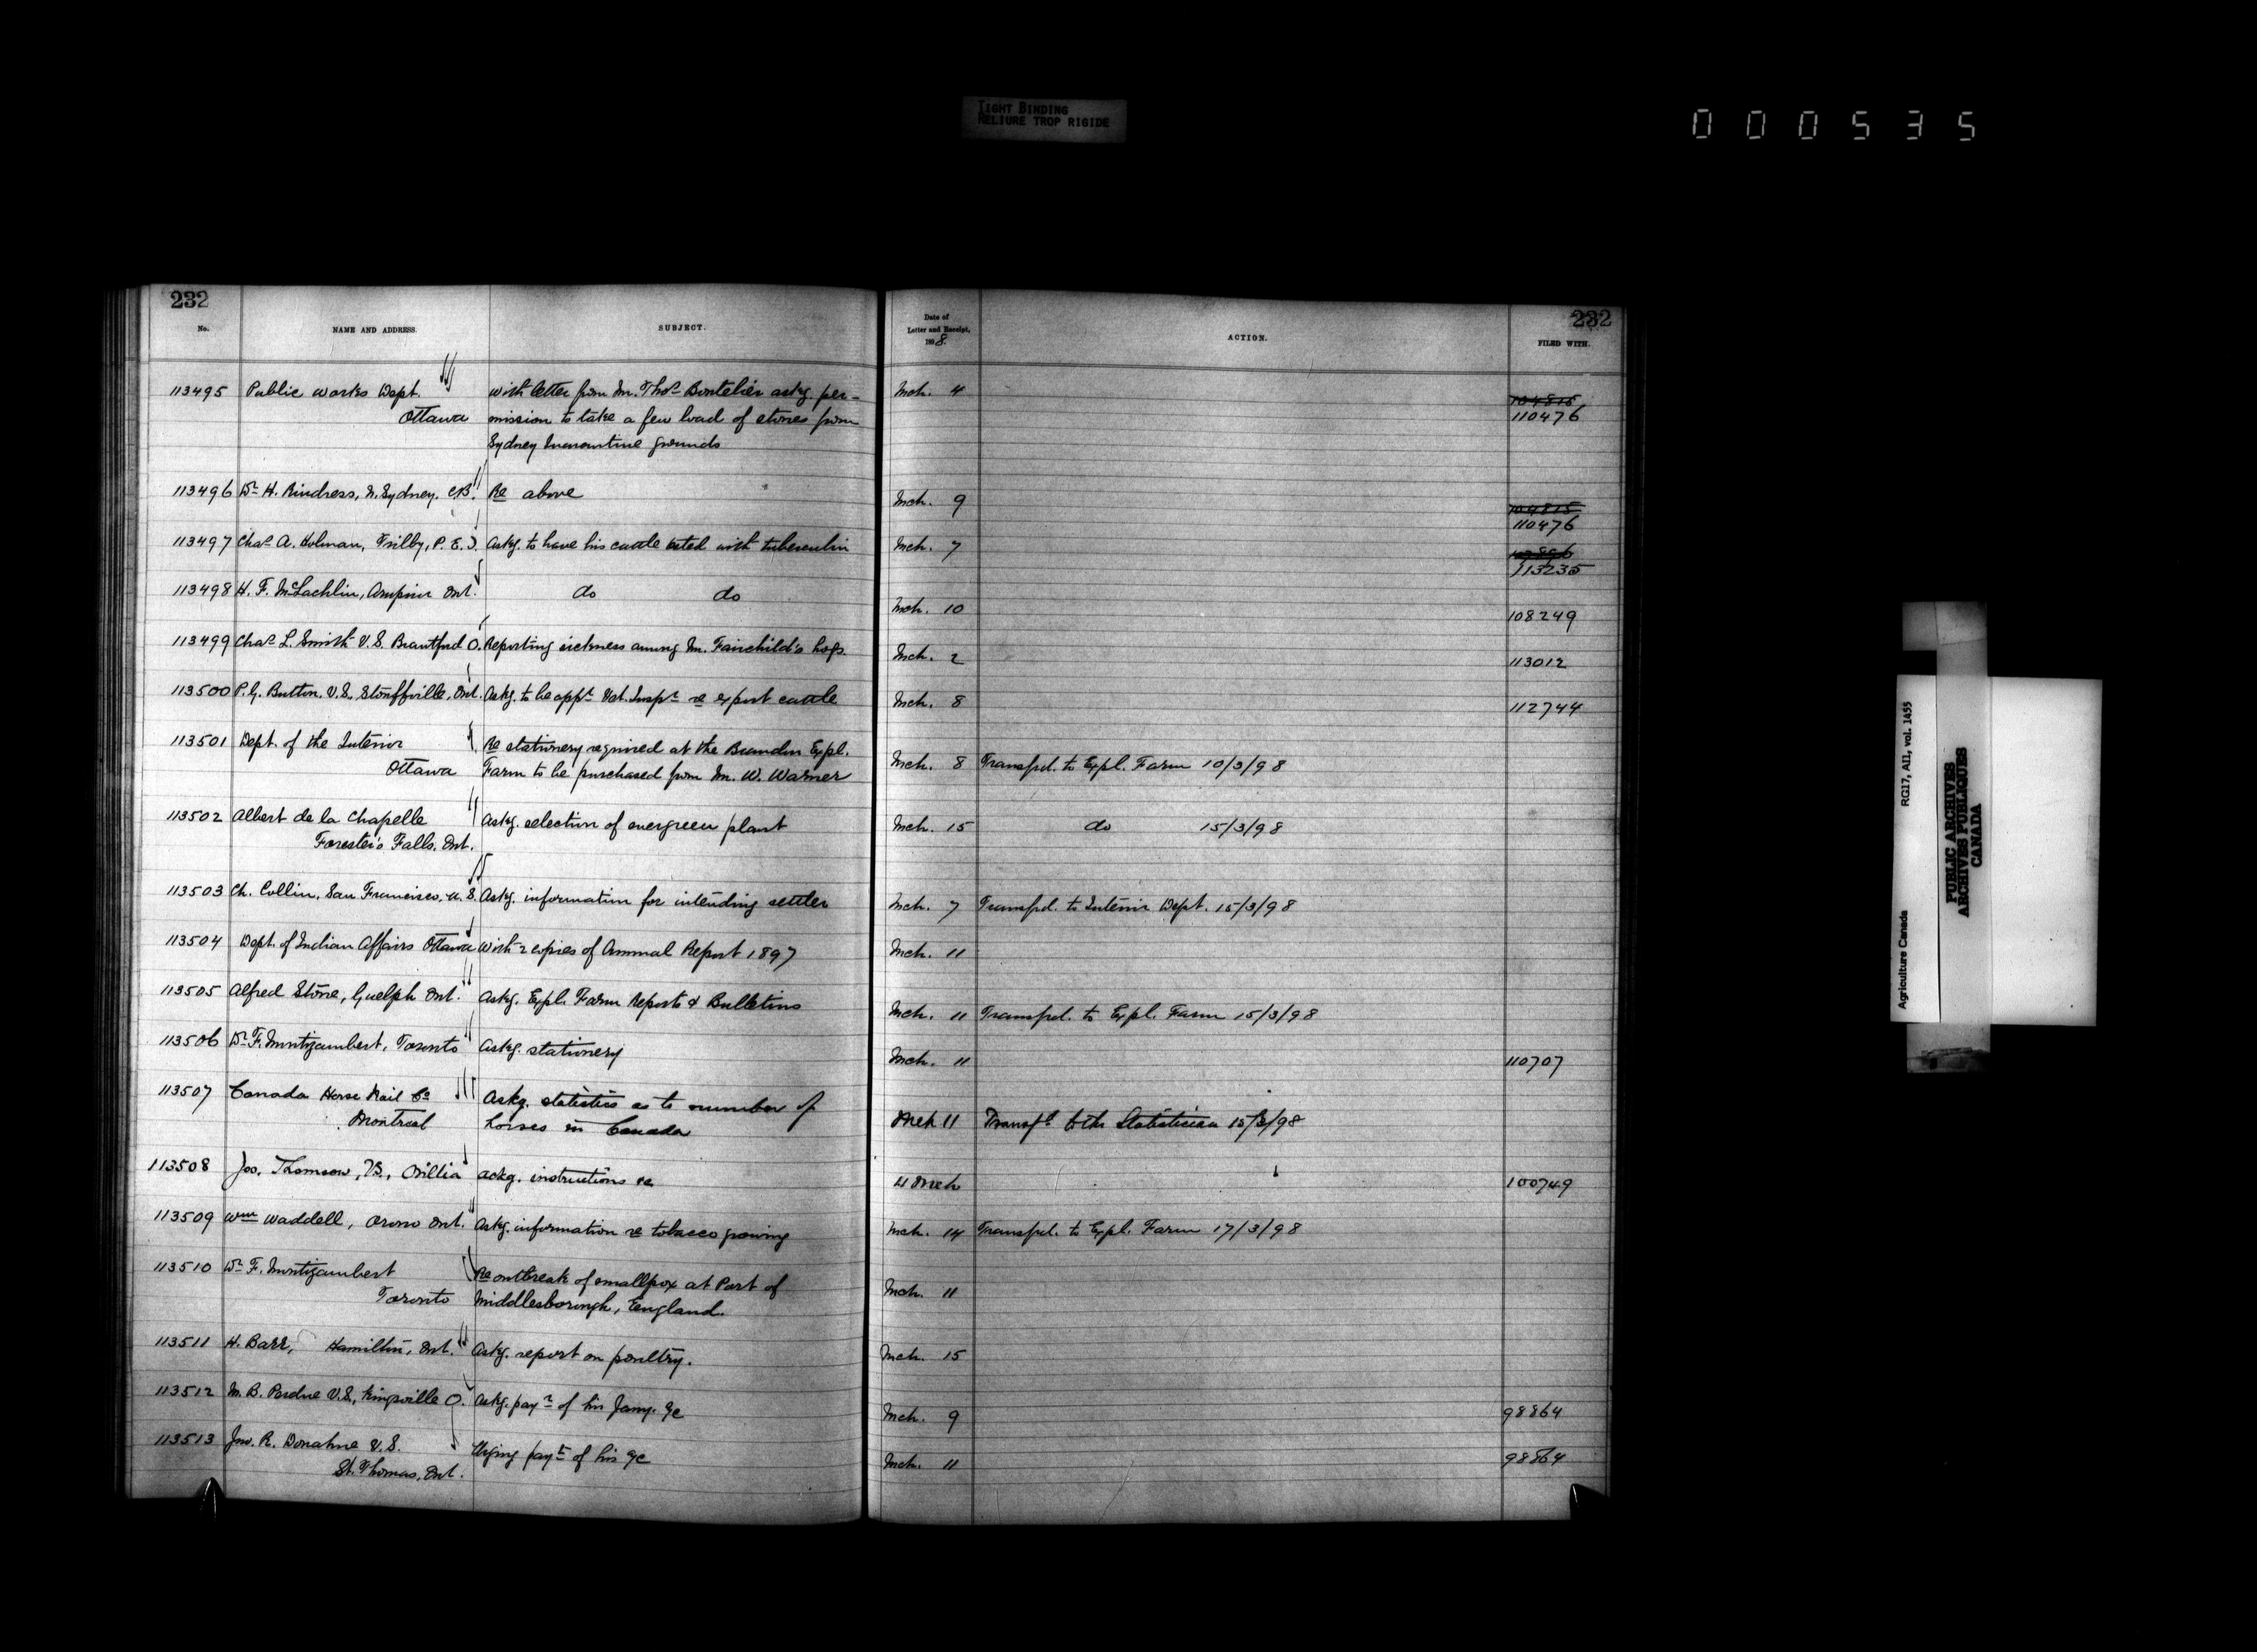 TIGHT BINDING
RELIURE TROP RIGIDE
000535
232
No. NAME AND ADDRESS. SUBJECT.
Date of
Letter and Receipt,
1898.
ACTION.
232
FILED WITH.
113495 Public Works Dept. With letter from Mr. Thos. Boutelier askg. per- Mch. 4 104815
Ottawa mission to take a few load of stones from 110476
Sydney Quarantine grounds
113496 Dr. H. Rindress, N. Sydney, C.B. Re above Mch. 9 104815
110476
113497 Chas. A. Holman, Trilby, P.E.I. Askg. to have his cattle tested with tuberculin Mch. 7
113235
113498 H. F. McLachlin, Arnprior Ont. do do Mch. 10 108249
113499 Chas. L. Smith V.S. Brantford O. Reporting sickness among Mr. Fairchild's hogs. Mch. 2 113012
113500 P. G. Button, V.S., Stouffville, Ont. Askg. to be appt. Vet. Inspr. re export cattle Mch. 8 112744
113501 Dept. of the Interior Re stationery required at the Brandon Expl.
Ottawa Farm to be purchased from Mr. W. Warner Mch. 8 Transfd. to Expl. Farm 10/3/98
113502 Albert de la Chapelle Askg. selection of evergreen plant Mch. 15 do 15/3/98
Forester's Falls, Ont.
113503 Ch. Collin, San Francisco, U.S. Askg. information for intending settler Mch. 7 Transfd. to Interior Dept. 15/3/98
113504 Dept. of Indian Affairs Ottawa With 2 copies of Annual Report 1897 Mch. 11
113505 Alfred Stone, Guelph Ont. Askg. Expl. Farm Reports & Bulletins Mch. 11 Transfd. to Expl. Farm 15/3/98
113506 Dr. F. Montizambert, Toronto Askg. stationery Mch. 11 110707
113507 Canada Horse Nail Co. Askg. statistics as to number of
Montreal horses in Canada Mch 11 Transfd. to the Statistician 15/3/98
113508 Jos. Thomson, V.S., Orillia askg. instructions re 11 Mch 100749
113509 Wm. Waddell, Orono Ont. Askg. information re tobacco growing Mch. 14 Transfd. to Expl. Farm 17/3/98
113510 Dr. F. Montizambert Re outbreak of smallpox at Port of
Toronto Middlesborough, England. Mch. 11
113511 H. Barr, Hamilton, Ont. Askg. report on poultry. Mch. 15
113512 M. B. Perdue V.S., Kingsville O. Askg. payt. of his Jany. %c Mch. 9 98864
113513 Jno. R. Donahue V.S. Urging payt. of his %c Mch. 11 98864
St. Thomas, Ont.
Agriculture Canada RG17, AII, vol. 1455
PUBLIC ARCHIVES
ARCHIVES PUBLIQUES
CANADA